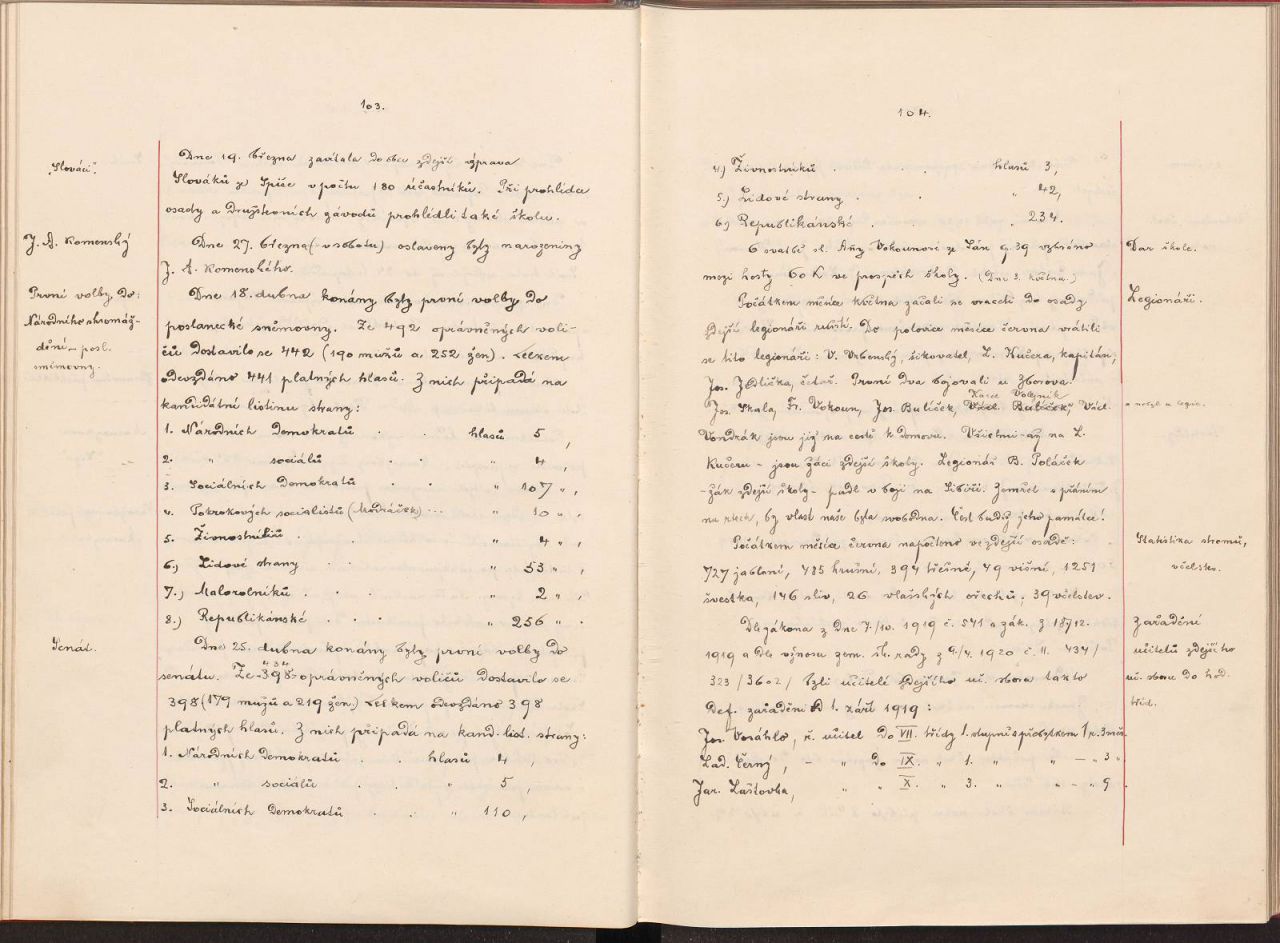 103.
Dne 19. března zavítala do obce zdejší výprava
„Slováci“.
Slováků ze Spíše v počtu 180 účastníků. Při prohlídce
osady a Družstevních závodů prohlédli také školu.
J. A. Komenský
Dne 27. března (v sobotu) oslaveny byly narozeniny
J. A. Komenského.
První volby do
Národního shromáž-
dění – posl.
sněmovny.
Dne 18. dubna konány byly první volby do
poslanecké sněmovny. Ze 492 oprávněných voli-
čů dostavilo se 442 (190 mužů a 252 žen). Celkem
odevzdáno 441 platných hlasů. Z nich připadá na
kandidátní listinu strany:
1. Národních Demokratů . . hlasů 5,
2. " sociálů " 4,
3. Sociálních Demokratů . . " 107 ",
4. Pokrokových socialistů (Modráček) ... " 10 ",
5. Živnostníků . . " 4 ",
6.) Lidové strany . . " 53 ",
7.) Malorolníků . . . " 2 ",
8.) Republikánské . . . " 256 ".
Senát.
Dne 25. dubna konány byly první volby do
senátu. Ze 434 oprávněných voličů dostavilo se
398 (179 mužů a 219 žen.) Celkem odevzdáno 398
platných hlasů. Z nich připadá na kand. list. strany:
1. Národních Demokratů . . hlasů 4,
2. " sociálů . . " 5,
3. Sociálních Demokratů . . " 110,
104.
4.) Živnostníků . . . hlasů 3,
5.) Lidové strany . . " 42,
6.) Republikánské . . " 234.
O svatbě sl. Any Vokounové ze Lán č. 39 vybráno
Dar škole.
mezi hosty 60 K ve prospěch školy. (Dne 3. května.)
Počátkem měsíce května začali se vraceti do osady
Legionáři.
zdejší legionáři ruští. Do polovice měsíce června vrátili
se tito legionáři: V. Vrbenský, šikovatel, L. Kučera, kapitán,
Jos. Jedlička, četař. První dva bojovali u Zborova.
Karel Volejník
Jos. Skala, Fr. Vokoun, Jos. Bulíček, Václ. Bulíček, Václ.
a nebyl u legie.
Vondrák jsou již na cestě k domovu. Všichni – až na L.
Kučeru – jsou žáci zdejší školy. Legionář B. Poláček
– žák zdejší školy – padl v boji na Sibiři. Zemřel s přáním
na rtech, by vlast naše byla svobodna. Čest budiž jeho památce!
Počátkem měsíce června napočteno ve zdejší osadě:
Statistika stromů,
včelstv.
727 jabloní, 485 hrušní, 394 třešně, 49 višní, 1251
švestka, 146 sliv, 26 vlašských ořechů; 39 včelstev.
Dle zákona z dne 7./10. 1919 č. 541 a zák. z 18/12.
Zařadění
učitelů zdejšího
uč. sboru do hod.
tříd.
1919 a dle výnosu zem. šk. rady z 9./4. 1920 č. II. 434/
323/3602/ byli učitelé zdejšího uč. sboru takto
def. zařaděni od 1. září 1919:
Jos. Vosáhlo, ř. učitel do VII. třídy 1. stupně s přebytkem 1 r. 3 měs.
Lad. Černý, – " do IX. " 1. " " – " 3 "
Jar. Laštovka, " " X. " 3. " " – " 9 ".